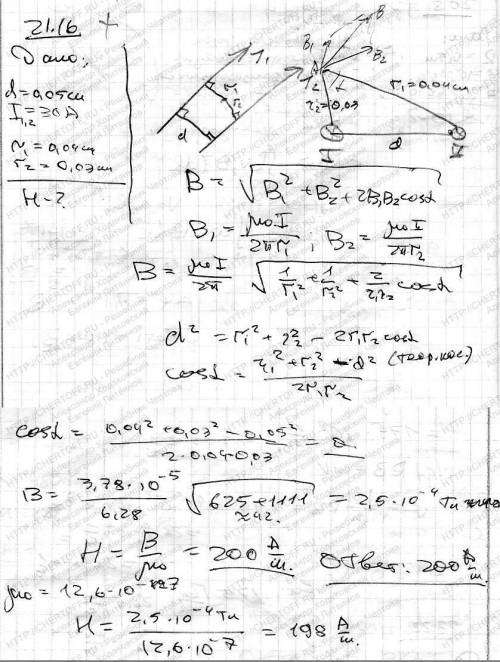 21.16. +
Дано:
d=0,05см
I₁,₂=30А
r₁=0,04см
r₂=0,03см
H-?
I₁
r₁
r₂
I₂
d
B
B₁
B₂
A
α
r₁=0,04см
r₂=0,03
d
B = √(B₁² + B₂² + 2B₁B₂cosα)
B₁ = μ₀I/2πr₁ ; B₂ = μ₀I/2πr₂
B = μ₀I/2π √(1/r₁² + 1/r₂² + 2/r₁r₂ cosα)
d² = r₁² + r₂² - 2r₁r₂cosα
cosα = (r₁² + r₂² - d²)/2r₁r₂ (теор.кос.)
cosα = (0,04² + 0,03² - 0,05²)/(2·0,04·0,03) = 0
B = 3,78·10⁻⁵/6,28 √(625+1111) = 2,5·10⁻⁴Тл
≈42.
H = B/μ₀ = 200 А/м. Ответ: 200 А/м.
μ₀ = 12,6·10⁻⁷
H = 2,5·10⁻⁴Тл/12,6·10⁻⁷ = 198 А/м.